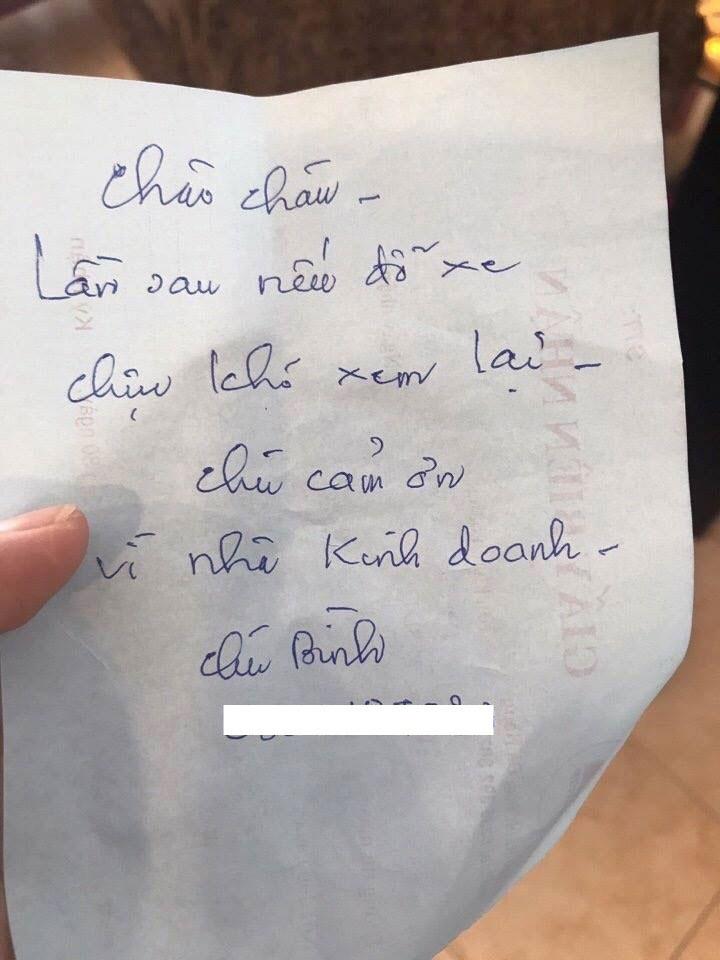 Chào cháu -
Lần sau nếu đỗ xe
chịu khó xem lại -
chú cảm ơn
vì nhà Kinh doanh -
chú Bình
GIẤY BIÊN NHẬN